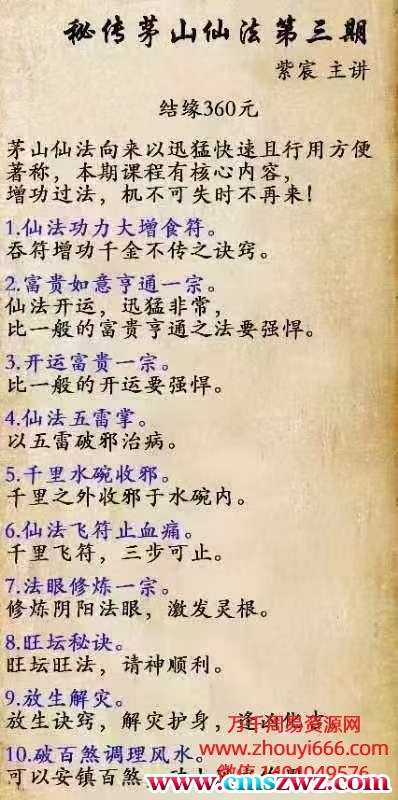 秘传茅山仙法第三期
紫宸 主讲
结缘360元
茅山仙法向来以迅猛快速且行用方便
著称，本期课程有核心内容，
增功过法，机不可失时不再来！
1.仙法功力大增食符。
吞符增功千金不传之诀窍。
2.富贵如意亨通一宗。
仙法开运，迅猛非常，
比一般的富贵亨通之法要强悍。
3.开运富贵一宗。
比一般的开运要强悍。
4.仙法五雷掌。
以五雷破邪治病。
5.千里水碗收邪。
千里之外收邪于水碗内。
6.仙法飞符止血痛。
千里飞符，三步可止。
7.法眼修炼一宗。
修炼阴阳法眼，激发灵根。
8.旺坛秘诀。
旺坛旺法，请神顺利。
9.放生解灾。
放生诀窍，解灾护身，逢凶化吉。
万千周易资源网
www.zhouyi666.com
10.破百煞调理风水。
可以安镇百煞
www.cmszwz.com